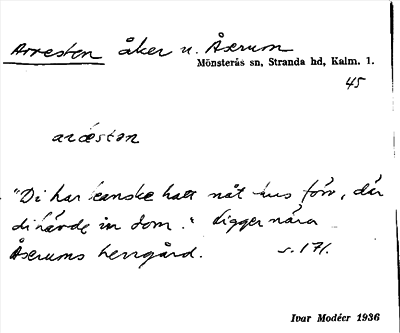 Arresten åker u. Åserum
Mönsterås sn, Stranda hd, Kalm. l.
45
aræstən
"Di har kanske haft nåt hus förr, där
di hävde in dom." Ligger nära
Åserums herrgård. s. 171.
Ivar Modéer 1936